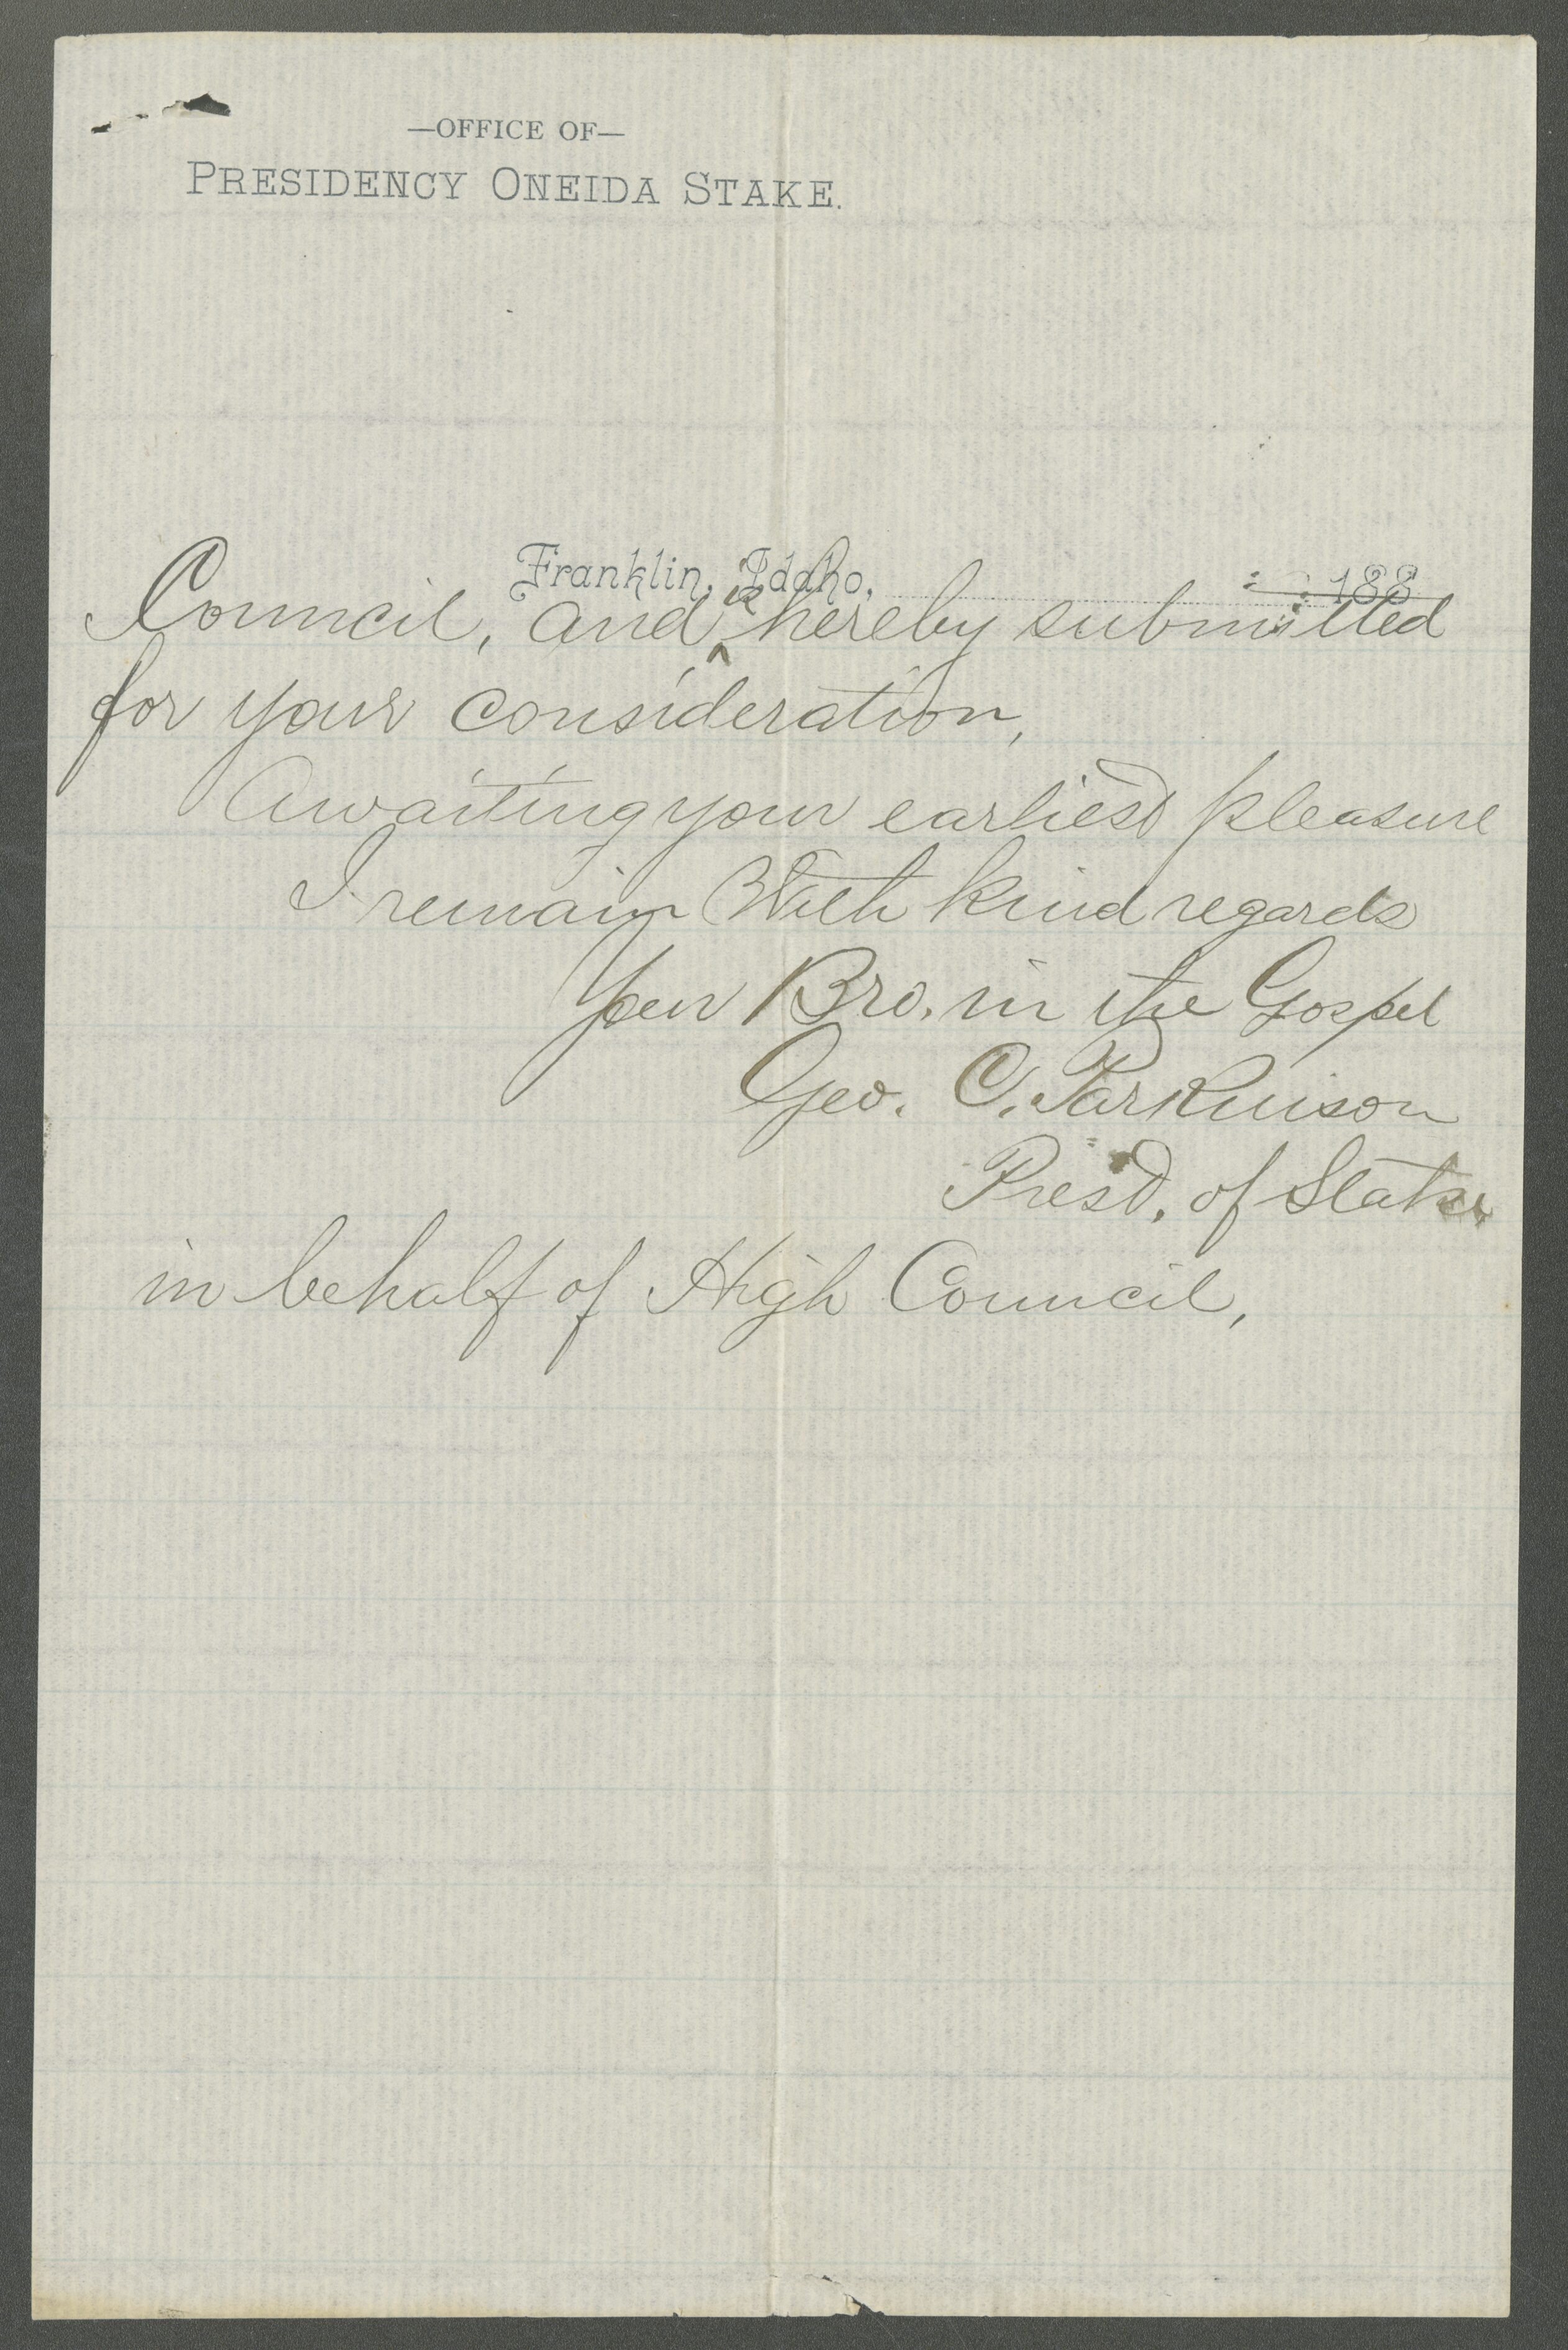 —OFFICE OF—
PRESIDENCY ONEIDA STAKE.
Franklin, Idaho, 188
Council, and is hereby submitted
for your consideration,
Awaiting your earliest pleasure
I remain With kind regards
Your Bro. in the Gospel
Geo. C. Parkinson
Prest. of Stake
in behalf of High Council,